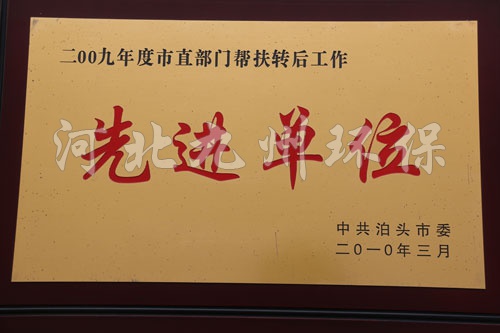 二00九年度市直部门帮扶转后工作
先进单位
河北九州环保
中共泊头市委
二0一0年三月